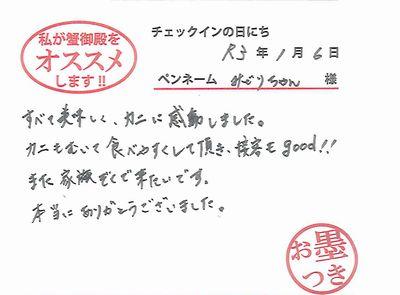 私が蟹御殿を
オススメ
します!!
チェックインの日にち
R3年1月6日
ペンネーム みどりちゃん 様
すべて美味しく、カニに感動しました。
カニもむいて食べやすくして頂き、接客もgood!!
また家族ぞくで来たいです。
本当にありがとうございました。
お墨
つき